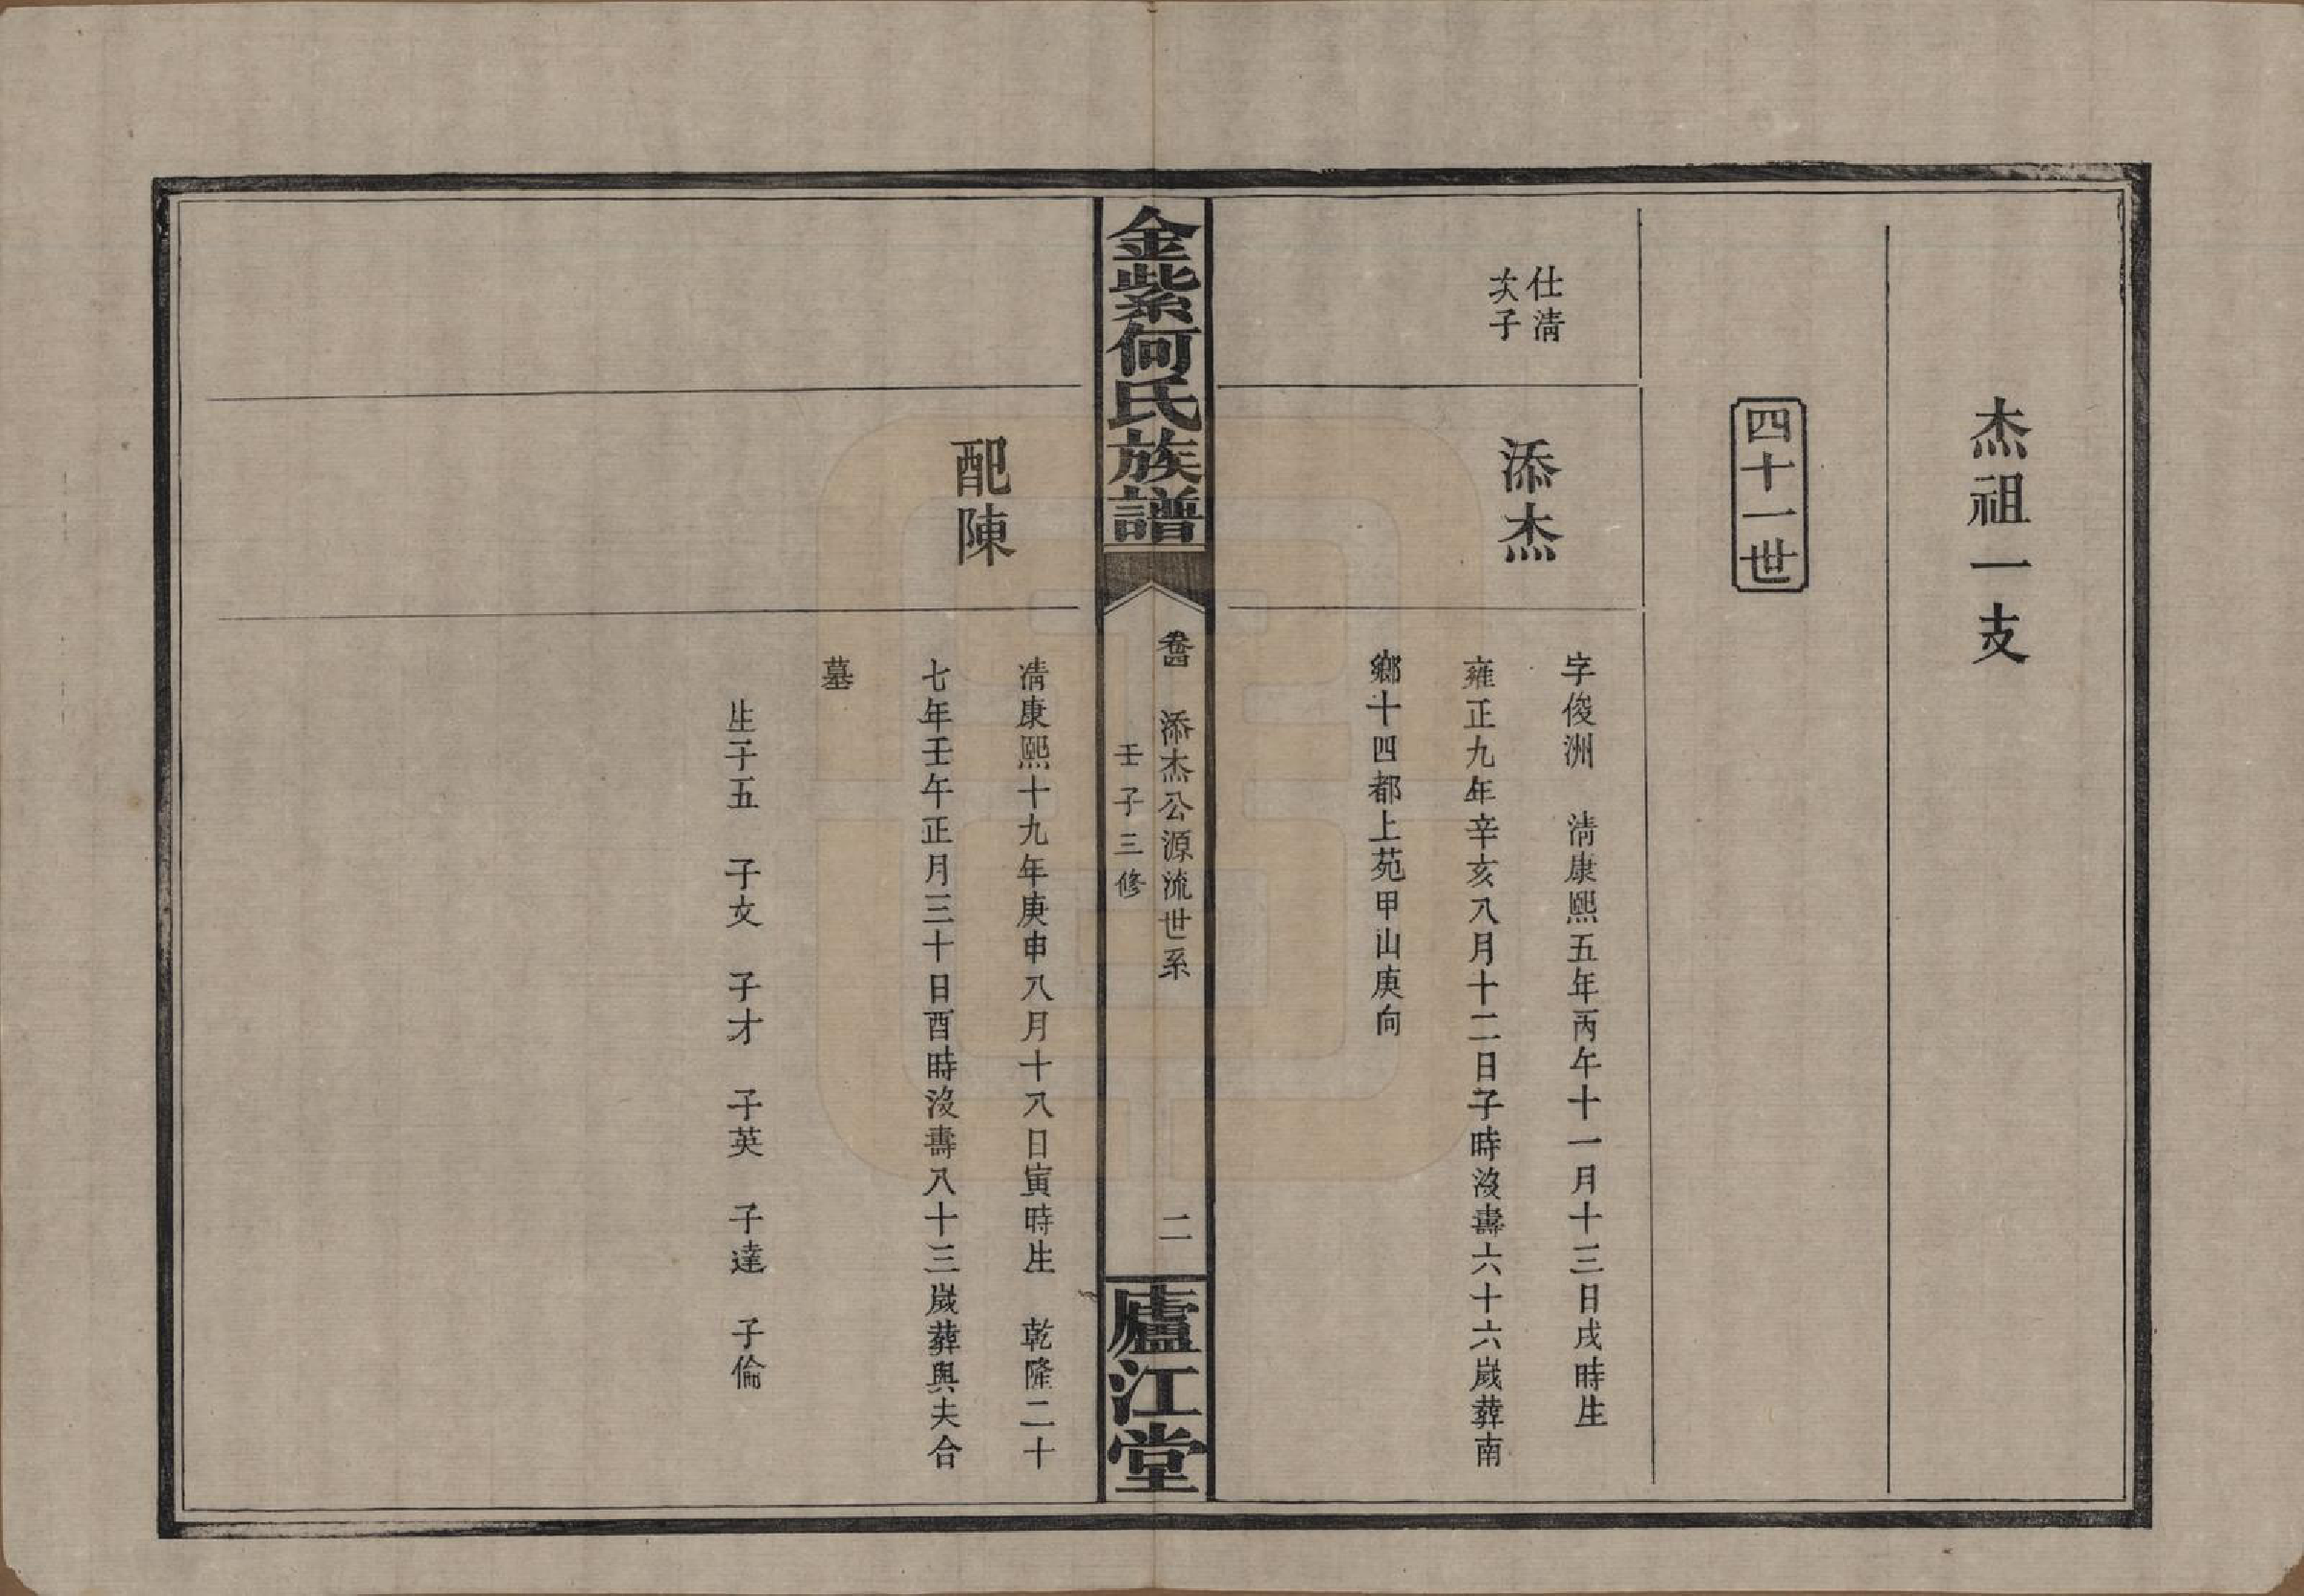 杰祖一支
四十一世
仕清
次子
添杰
字俊洲　清康熙五年丙午十一月十三日戌時生
雍正九年辛亥八月十二日子時沒壽六十六歲葬南
鄉十四都上苑甲山庚向
金紫何氏族譜
卷四　添杰公源流世系　二
壬子三修
廬江堂
配陳
清康熙十九年庚申八月十八日寅時生　乾隆二十
七年壬午正月三十日酉時沒壽八十三歲葬與夫合
墓
生子五　子文　子才　子英　子達　子倫